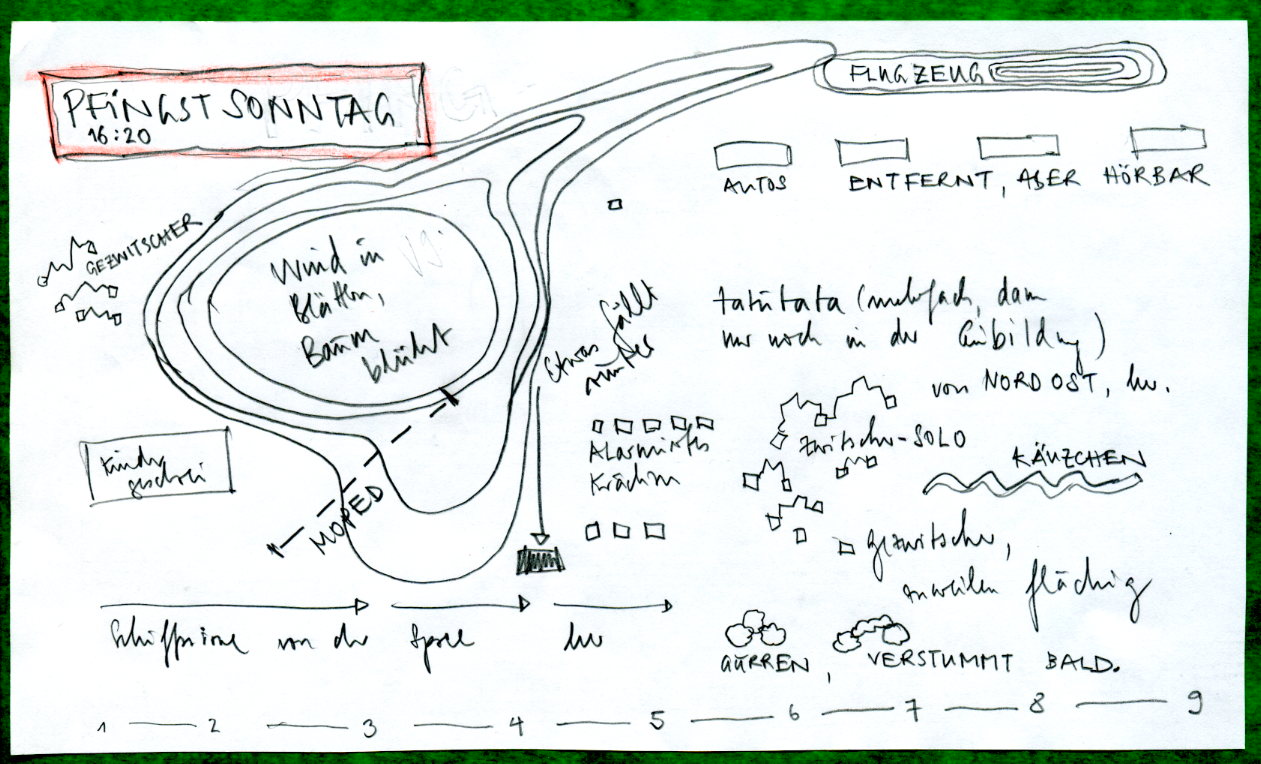 PFINGSTSONNTAG
16:20
FLUGZEUG
AUTOS ENTFERNT, ABER HÖRBAR
GEZWITSCHER
Wind in
Blättern,
Baum
blüht
etwas fällt
runter
tatütata (mehrfach, dann
nur noch in der Einbildung)
von NORDOST, her.
Zwitscher-SOLO
KÄUZCHEN
Kinder
geschrei
MOPED
Alarmirtes
Krächzen
Gezwitscher,
zuweilen flächig
Schiffsirene von der Spree her
GURREN, VERSTUMMT BALD.
1 2 3 4 5 6 7 8 9